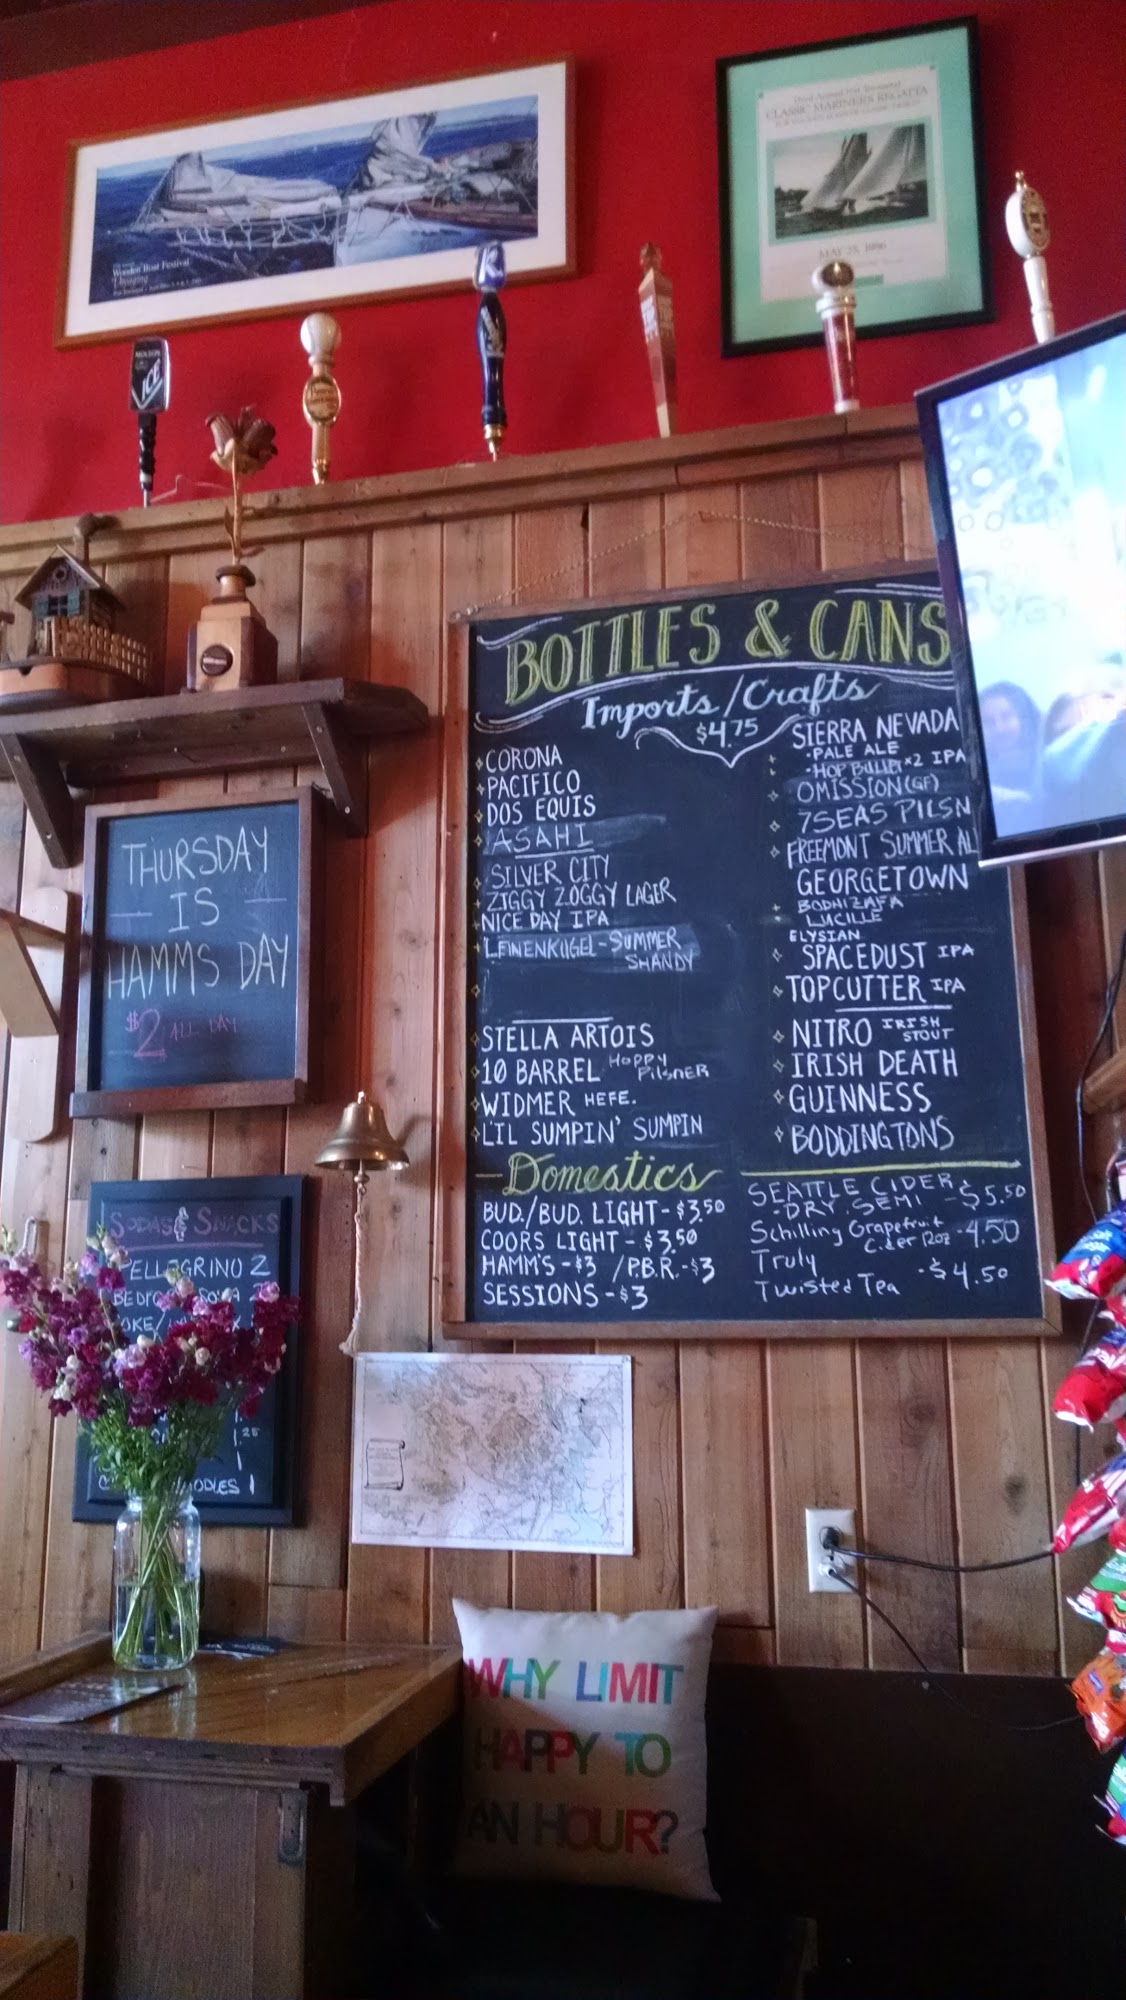 Wooden Boat Festival
CLASSIC MARINERS REGATTA
MAY 25, 1986
MOLSON
ICE
THURSDAY
IS
HAMMS DAY
$2 ALL DAY
SODAS & SNACKS
PELLEGRINO 2
COKE/
1.25
1
NOODLES 1
BOTTLES & CANS
Imports/Crafts
$4.75
CORONA
PACIFICO
DOS EQUIS
ASAHI
SILVER CITY
ZIGGY ZOGGY LAGER
NICE DAY IPA
LEINENKUGEL - SUMMER
SHANDY
STELLA ARTOIS
10 BARREL HOPPY
PILSNER
WIDMER HEFE.
L'IL SUMPIN' SUMPIN
SIERRA NEVADA
• PALE ALE
• HOP BULLET x2 IPA
OMISSION (GF)
7SEAS PILSN
FREEMONT SUMMER AL
GEORGETOWN
BODHIZAFA
LUCILLE
ELYSIAN
SPACEDUST IPA
TOPCUTTER IPA
NITRO IRISH
STOUT
IRISH DEATH
GUINNESS
BODDINGTONS
Domestics
BUD./BUD. LIGHT - $3.50
COORS LIGHT - $3.50
HAMM'S - $3 / P.B.R. - $3
SESSIONS - $3
SEATTLE CIDER
- DRY. SEMI - $5.50
Schilling Grapefruit
Cider 12oz - 4.50
Truly
Twisted Tea - $4.50
WHY LIMIT
HAPPY TO
AN HOUR?